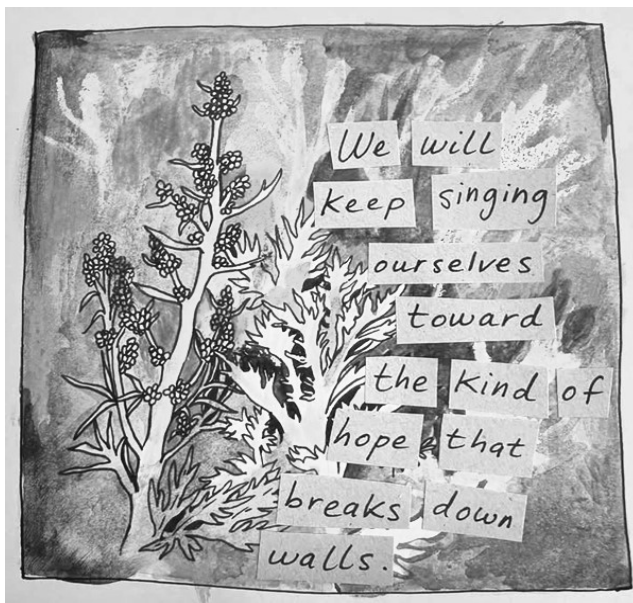 We will
keep singing
ourselves
toward
the kind of
hope that
breaks down
walls.